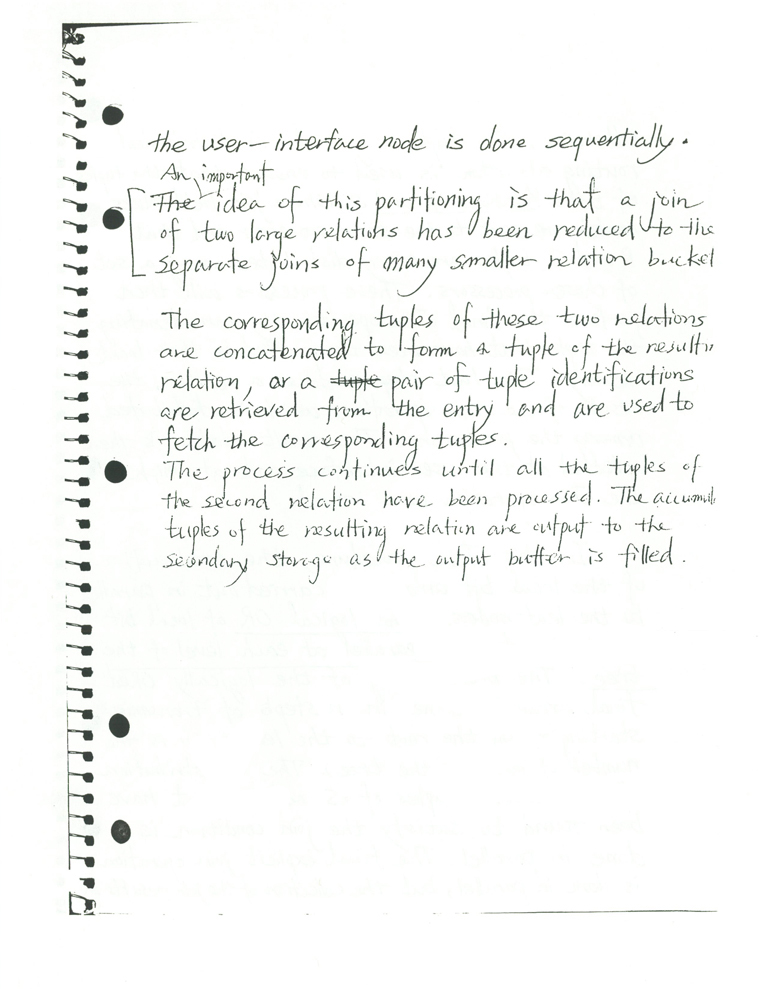 the user-interface node is done sequentially.
An important
The idea of this partitioning is that a join
of two large relations has been reduced to the
separate joins of many smaller relation bucket
The corresponding tuples of these two relations
are concatenated to form a tuple of the resulti
relation, or a tuple pair of tuple identifications
are retrieved from the entry and are used to
fetch the corresponding tuples.
The process continues until all the tuples of
the second relation have been processed. The accumul
tuples of the resulting relation are output to the
secondary storage as the output buffer is filled.